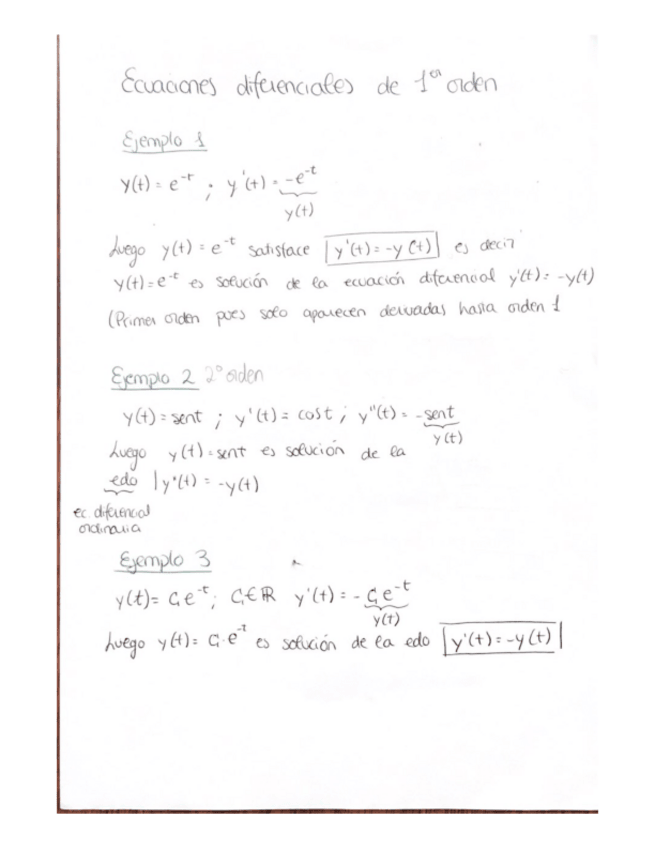 Ecuaciones diferenciales de 1er orden
Ejemplo 1
y(t) = e^-t ; y'(t) = -e^-t
y(t)
Luego y(t) = e^-t satisface y'(t) = -y(t) es decir
y(t) = e^-t es solución de la ecuación diferencial y'(t) = -y(t)
(Primer orden pues solo aparecen derivadas hasta orden 1
Ejemplo 2 2º orden
y(t) = sent ; y'(t) = cost ; y''(t) = -sent
y(t)
Luego y(t) = sent es solución de la
edo y''(t) = -y(t)
ec. diferencial
ordinaria
Ejemplo 3
y(t) = C₁e^-t ; C₁∈ℝ y'(t) = -C₁e^-t
y(t)
Luego y(t) = C₁·e^-t es solución de la edo y'(t) = -y(t)